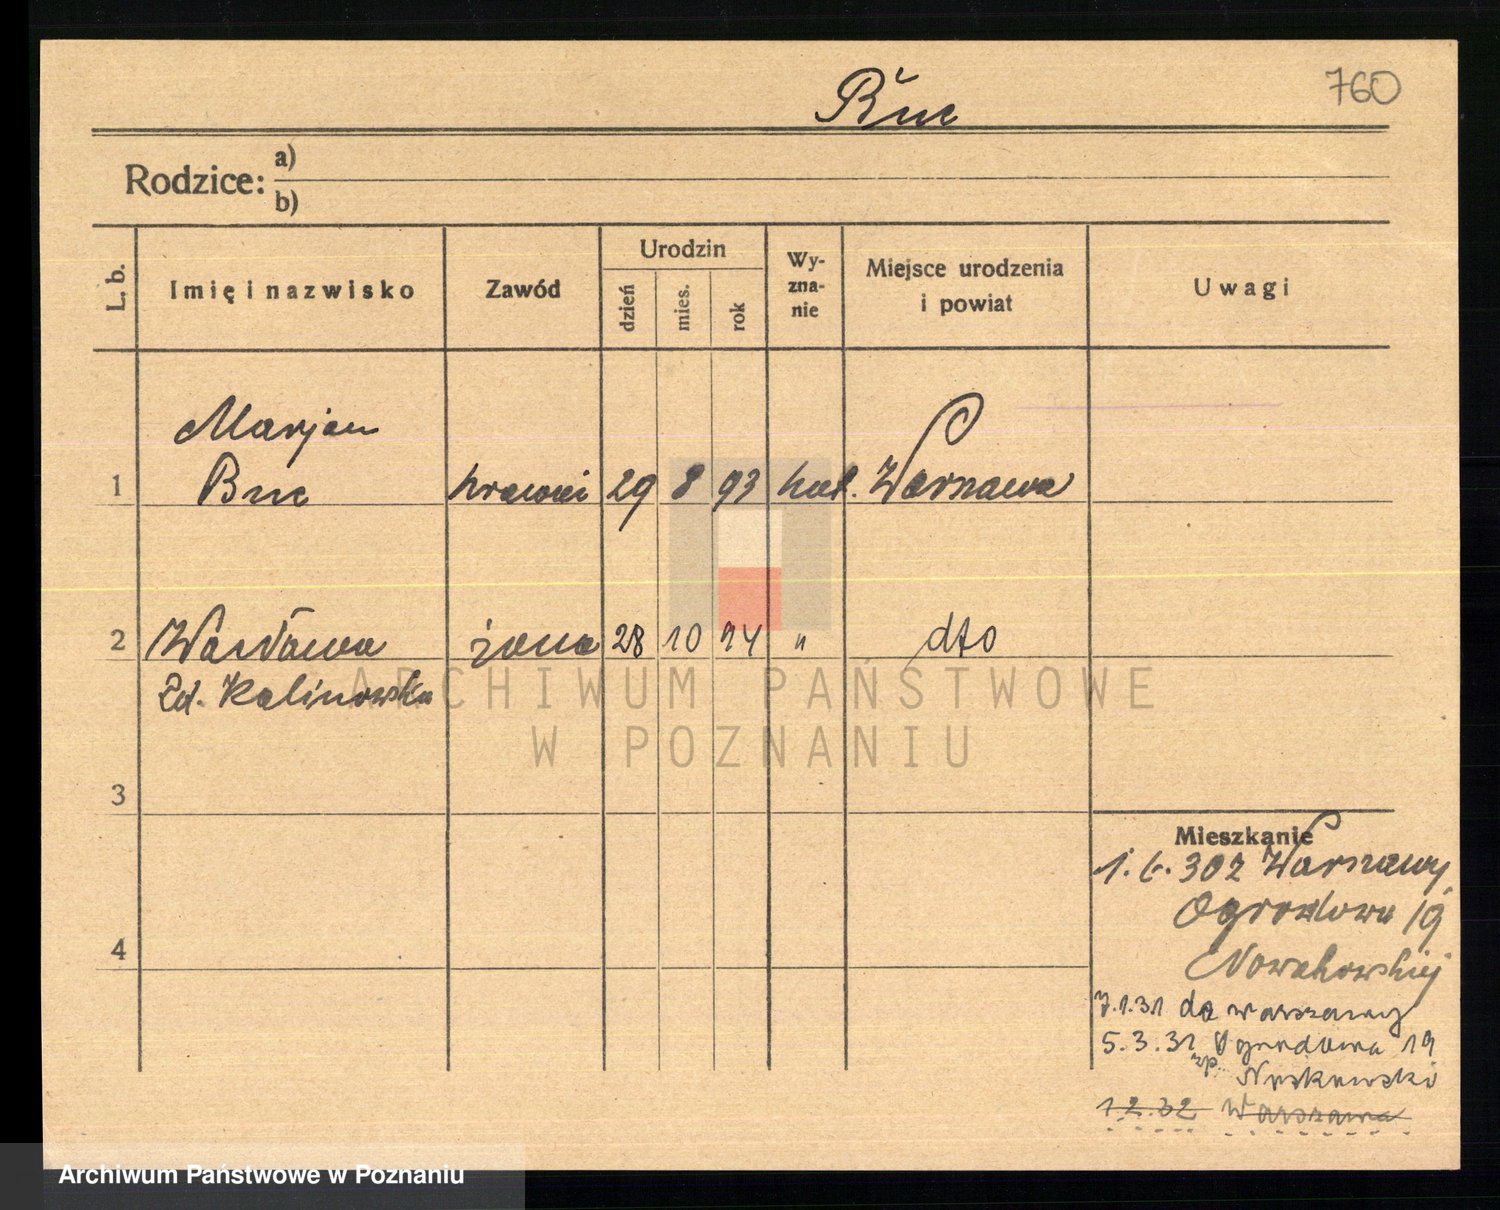 Buc
760
Rodzice: a)
b)
L. b.
Imię i nazwisko
Zawód
Urodzin
dzień
mies.
rok
Wy-
zna-
nie
Miejsce urodzenia
i powiat
Uwagi
Marjan
1 Buc krawiec 29 8 93 kat. Warszawa
2 Wacława żona 28 10 94 " dto
Zd. Kalinowska
ARCHIWUM PAŃSTWOWE
W POZNANIU
3
4
Mieszkanie
1. 6. 30 z Warszawy
Ogrodowa 19
Nowakowskiej
7.1.31 do Warszawy
5.3.31 Ogrodowa 19
1 2. 32 Warszawa
Archiwum Państwowe w Poznaniu